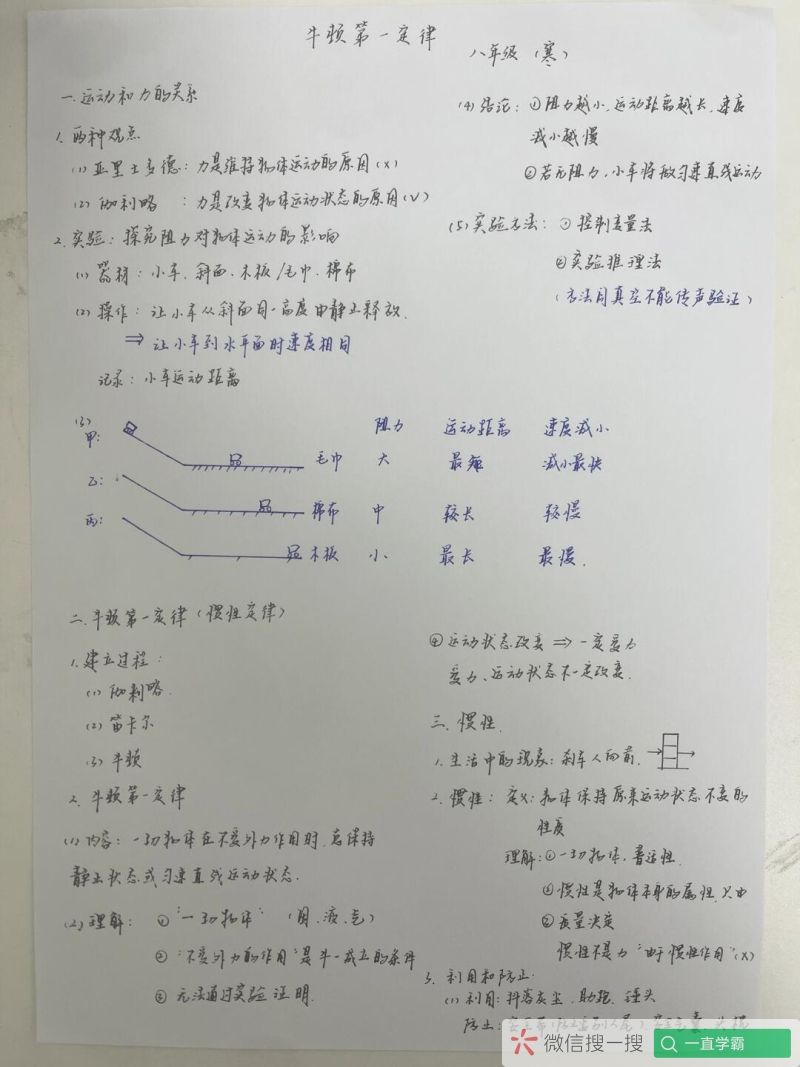 牛顿第一定律
八年级（寒）
一.运动和力的关系
1.两种观点
(1)亚里士多德：力是维持物体运动的原因(×)
(2)伽利略：力是改变物体运动状态的原因(√)
2.实验：探究阻力对物体运动的影响
(1)器材：小车.斜面.木板/毛巾.棉布
(2)操作：让小车从斜面同一高度由静止释放.
⇒让小车到水平面时速度相同
记录：小车运动距离
(3)
阻力 运动距离 速度减小
甲： 毛巾 大 最短 减小最快
乙： 棉布 中 较长 较慢
丙： 木板 小. 最长 最慢.
(4)结论：①阻力越小.运动距离越长.速度
减小越慢
②若无阻力,小车将做匀速直线运动
(5)实验方法：①控制变量法
②实验推理法
(方法同真空不能传声验证)
二.牛顿第一定律(惯性定律)
1.建立过程：
(1)伽利略.
(2)笛卡尔
(3)牛顿
2.牛顿第一定律
(1)内容：一切物体在不受外力作用时.总保持
静止状态或匀速直线运动状态.
(2)理解：①"一切物体"(固.液.气)
②"不受外力的作用"是牛一成立的条件
③无法通过实验证明.
④运动状态改变⇒一定受力
受力、运动状态不一定改变.
三.惯性.
1.生活中的现象：刹车人向前.
2.惯性：定义：物体保持原来运动状态不变的
性质
理解:①一切物体.普适性.
②惯性是物体本身的属性,只由
③质量决定
惯性不是力"由于惯性作用"(×)
3.利用和防止.
(1)利用:抖落灰尘.助跑.锤头
防止:
微信搜一搜
一直学霸